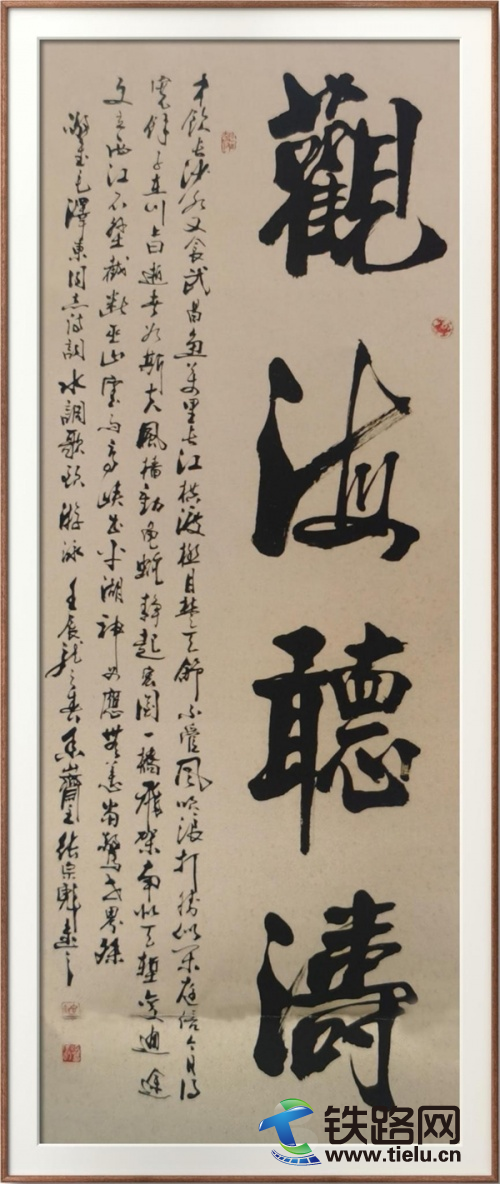 觀海聽濤
才飲長沙水又食武昌魚萬里長江橫渡極目楚天舒不管風吹浪打勝似閑庭信今日得
寬餘子在川上曰逝者如斯夫風檣動龜蛇靜起宏圖一橋飛架南北天塹變通途
更立西江石壁截斷巫山雲雨高峽出平湖神女應無恙當驚世界殊
敬書毛澤東同志詩詞水調歌頭游泳壬辰龍之春齋主張宗書之
铁路网
www.tielu.cn